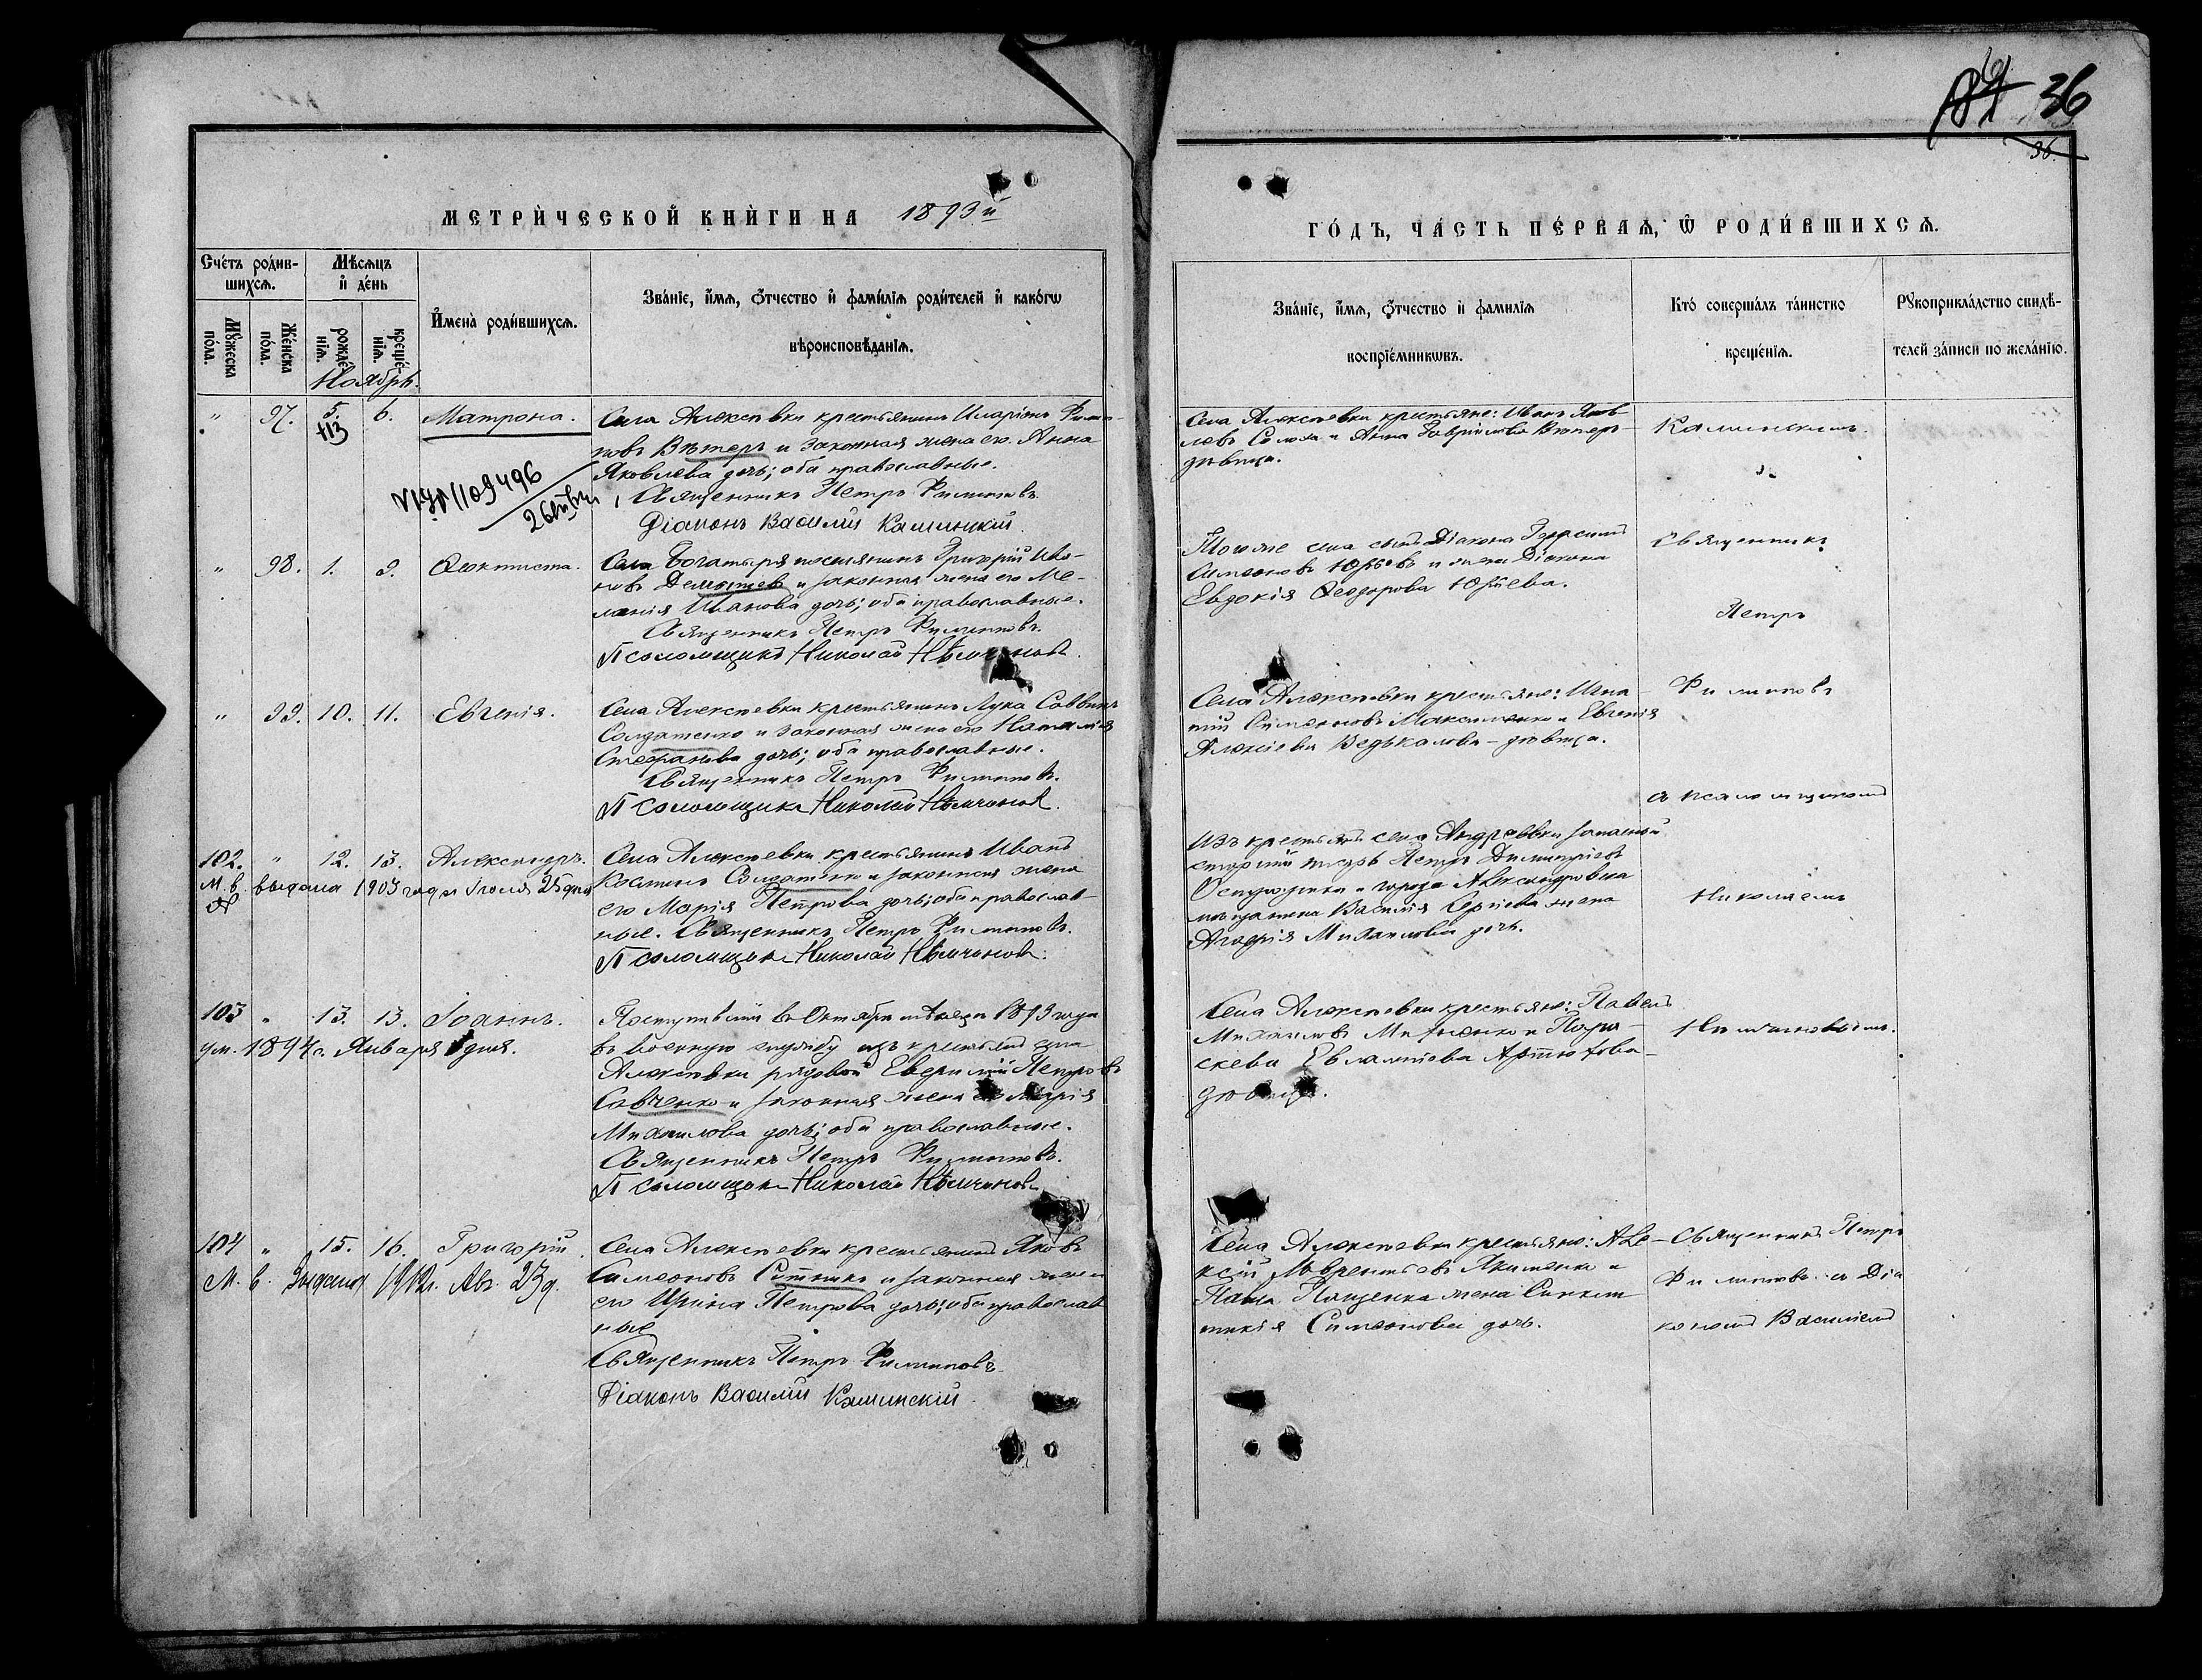 36
36.
МЕТРИЧЕСКОЙ КНИГИ НА 1893й
ГОДЪ, ЧАСТЬ ПЕРВАЯ, Ѿ РОДИВШИХСЯ.
Счетъ родив-
шихся.
Мѣсяцъ
и день
Мужеска
пола.
Женска
пола.
рожде-
нія.
креще-
нія.
Ноябрь.
Имена родившихся.
Званіе, имя, Ѻтчество и фамилія родителей и какогѡ
вѣроисповѣданія.
Званіе, имя, Ѻтчество и фамилія
воспріемникѡвъ.
Кто совершалъ таинство
крещенія.
Рукоприкладство свидѣ-
телей записи по желанію.
" 97. 5. 6. Матрона.
†13
Села Алексѣевки крестьянинъ Иларіонъ Филип-
повъ Вѣтеръ и законная жена его Анна
Яковлева дочь; оба православные.
Священникъ Петръ Филипповъ.
Діаконъ Василій Каминскій.
Села Алексѣевки крестьяне: Иванъ Яков-
левъ Солоха и Анна Гавріилова Вѣтеръ-
дѣвица.
Каминскимъ.
" 98. 1. 9. Ѳеоктиста.
Села Богатыря поселянинъ Григорій Ива-
новъ и законная жена его Ме-
ланія Иванова дочь; оба православные.
Священникъ Петръ Филипповъ.
Псаломщикъ Николай Нѣмчиновъ.
Того же села сынъ Діакона Герасимъ
Симеоновъ Юрьевъ и жена Діакона
Евдокія Ѳеодорова Юрьева.
Священникъ
Петръ
" 99. 10. 11. Евгенія.
Села Алексѣевки крестьянинъ Лука Саввинъ
Солдатенко и законная жена его Наталія
Стефанова дочь; оба православные.
Священникъ Петръ Филипповъ.
Псаломщикъ Николай Нѣмчиновъ.
Села Алексѣевки крестьяне: Игна-
тій Симеоновъ Максименко и Евгенія
Алексіева Ведькалова - дѣвица.
Филипповъ
съ псаломщикомъ
102. " 12. 13. Александръ.
М. в. выдана 1903 года Іюля 25 дня
Села Алексѣевки крестьянинъ Иванъ
Костинъ Солдатенко и законная жена
его Марія Петрова дочь; оба православ-
ные. Священникъ Петръ Филипповъ.
Псаломщикъ Николай Нѣмчиновъ.
Изъ крестьянъ села Андреевки запасный
старшій писарь Петръ Димитріевъ
и города Александровска
мѣщанина Василія Сергіева жена
Агафія Михаилова дочь.
Николаемъ
103 " 13. 13. Іоаннъ.
ум. 1894 г. Января дня.
Поступившій въ Октябрѣ мѣсяцѣ 1893 года
въ военную службу изъ крестьянъ села
Алексѣевки рядовой Евфимій Петровъ
Савченко и законная жена его Марія
Михаилова дочь; оба православные.
Священникъ Петръ Филипповъ.
Псаломщикъ Николай Нѣмчиновъ
Села Алексѣевки крестьяне: Павелъ
Михаиловъ и Пара-
скева Евлампіева Артюхова-
дѣвица.
Нѣмчиновымъ.
104 " 15. 16. Григорій.
М. в. Выдана 1912 г. Авг. 23 д.
Села Алексѣевки крестьянинъ Яковъ
Симеоновъ Ситникъ и законная жена
его Ирина Петрова дочь; оба православ
ные
Священникъ Петръ Филипповъ
Діаконъ Василій Каминскій.
Села Алексѣевки крестьяне: Але-
ксій Лаврентьевъ Якименко и
Павла Пащенка жена Синкли
тикія Симеонова дочь.
Священникъ Петръ
Филипповъ съ Діа
кономъ Василіемъ